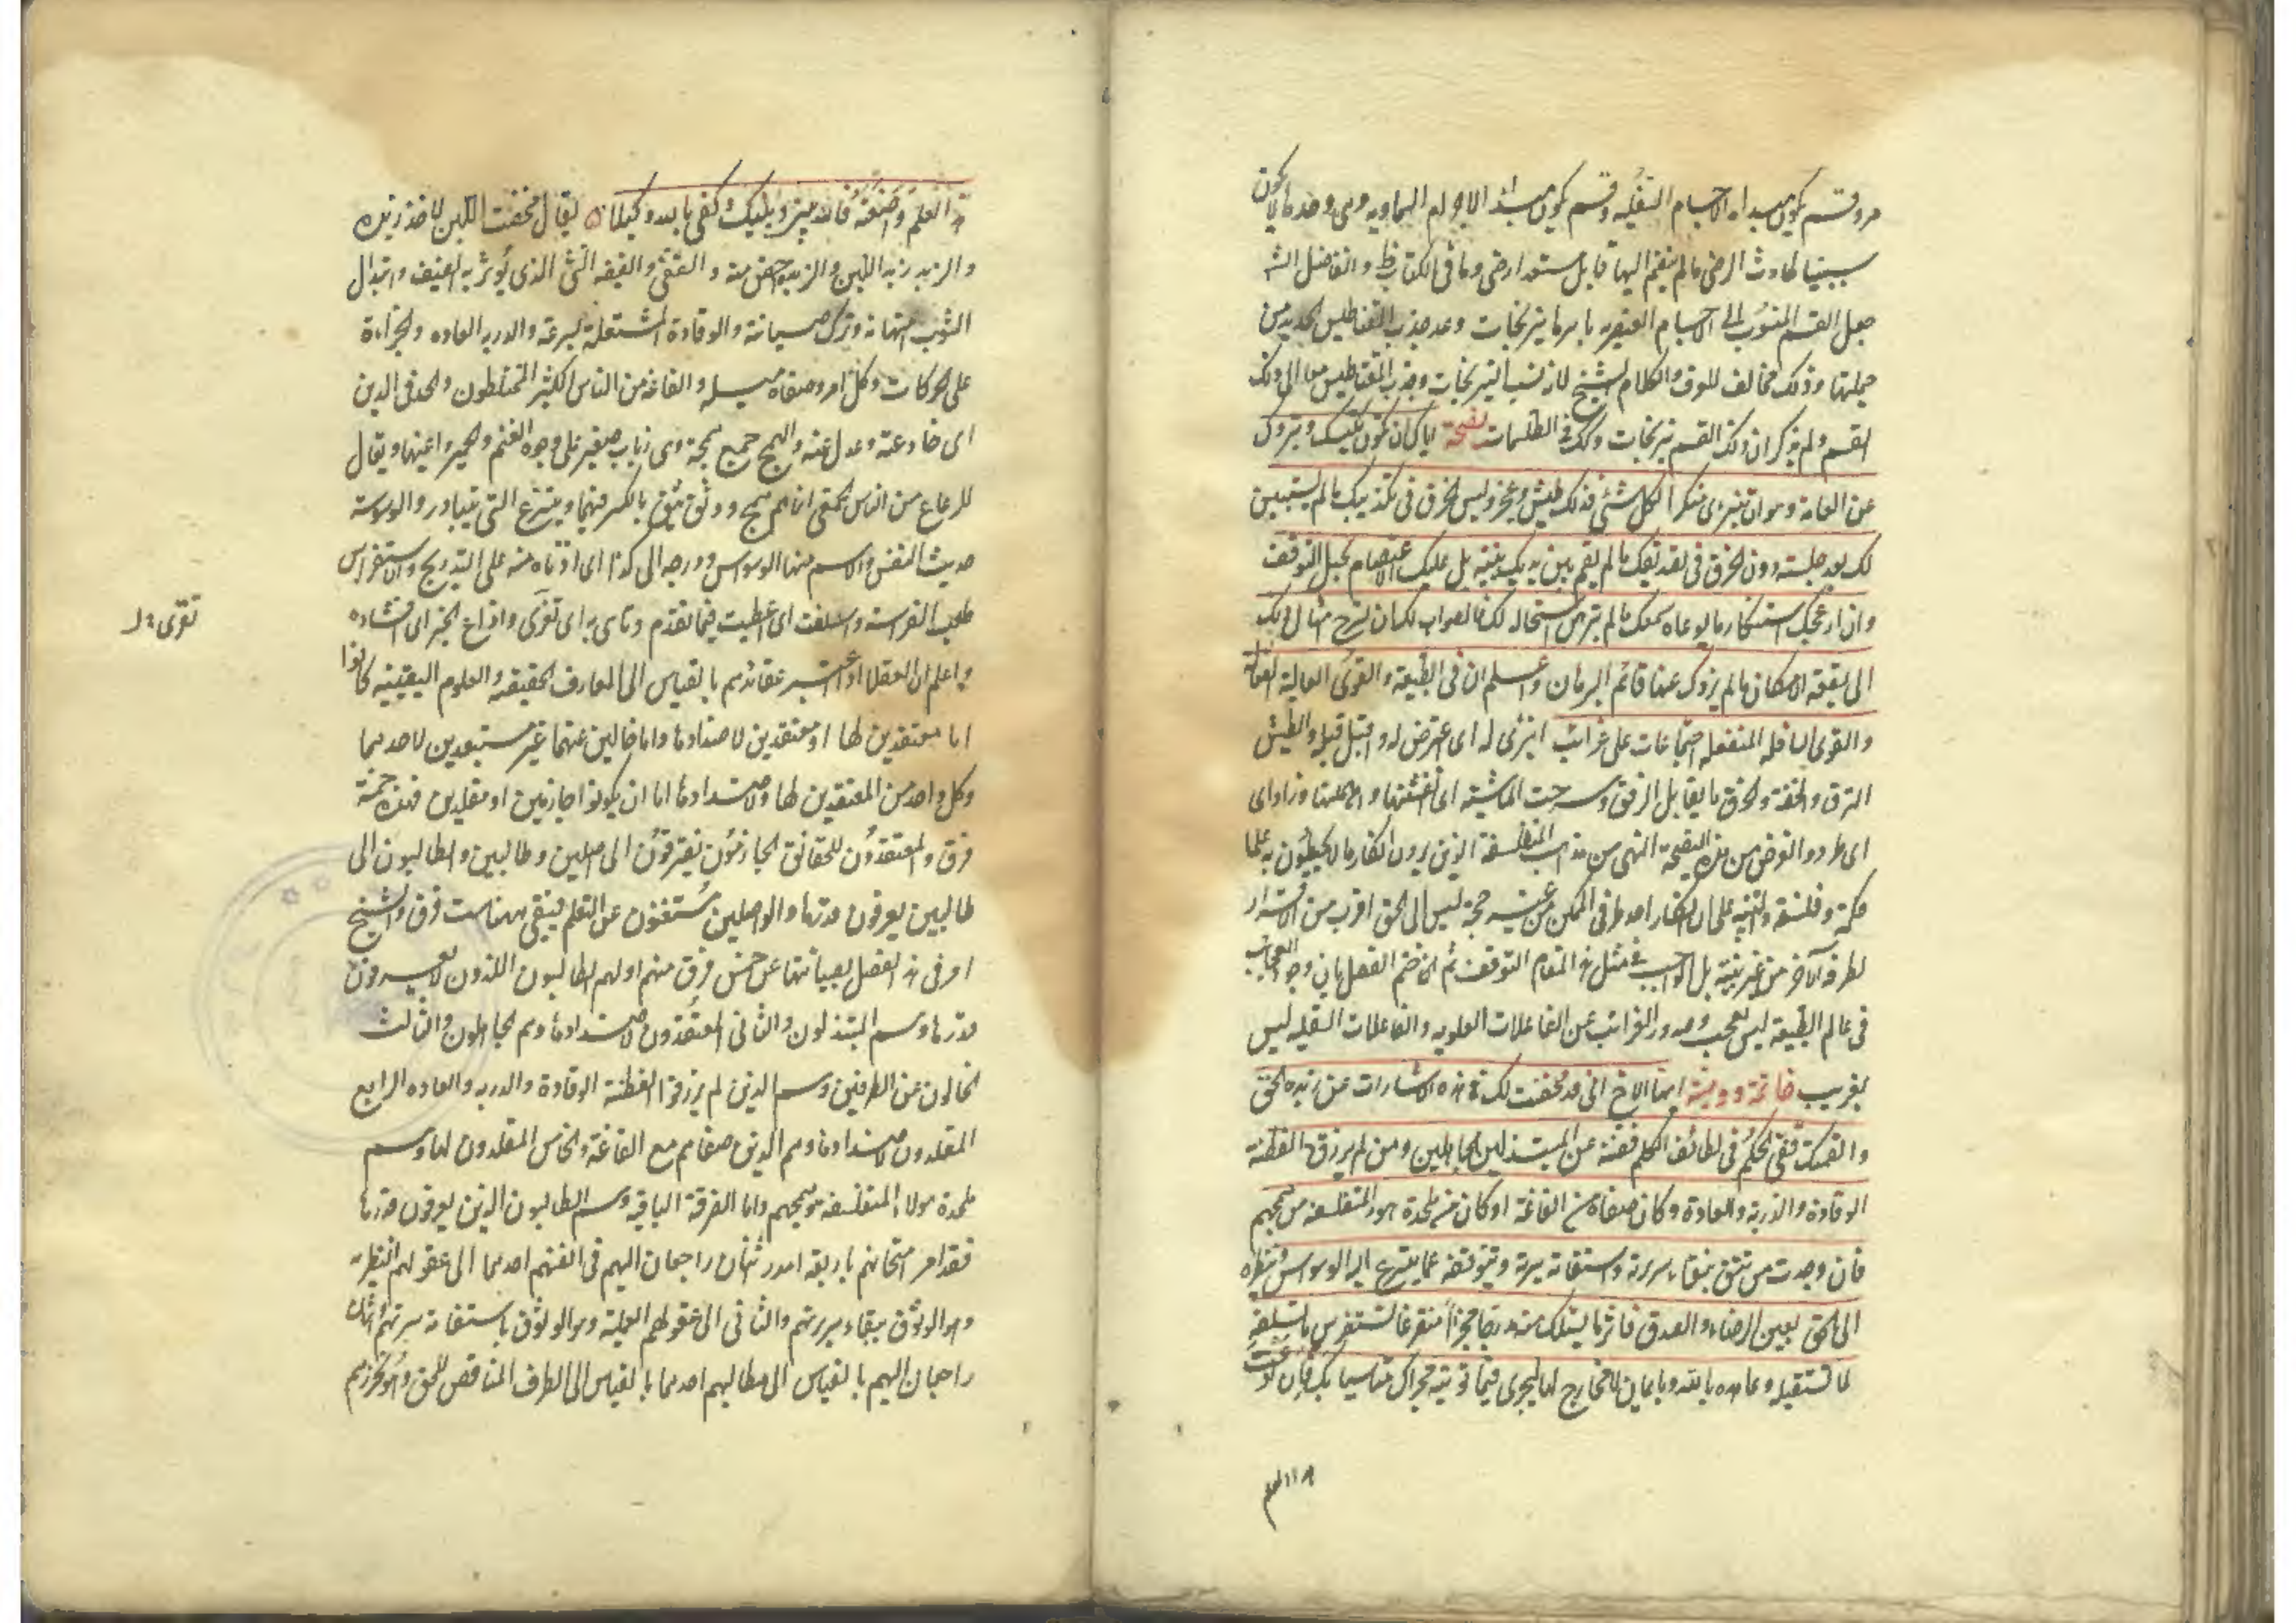 وقسم يكون مبداه الاجسام السفليه وقسم يكون مبداه الاجرام السماويه وهى وحدها لا يكون
سببا لحادث ارضى ما لم ينضم اليها قابل مستعد ارضى وما فى الكتاب ظ والفاضل الش
جعل القسم المنسوب الى الاجسام العنصريه باسرها نيرنجات وعد جذب المغناطيس الحديد من
جملتها وذلك مخالف للعرف ولكلام الشيخ لانه نسب النيرنجات وجذب المغناطيس معا الى ذلك
القسم ولم يذكر ان ذلك القسم نيرنجات وكذلك فى الطلسمات نصيحة اياك ان يكون تكيسك وتبروك
عن العامة هو ان تنبرى منكرا لكل شئ فذلك طيش وعجز وليس الخرق فى تكذيبك ما لم يستبين
لك بعد جليته دون الخرق فى تصديقك ما لم يقم بين يديك بينة بل عليك الاعتصام بحبل التوقف
وان ازعجك استنكار ما يوعاه سمعك ما لم تتبرهن استحالته لك فالصواب لك ان تسرح امثال ذلك
الى بقعة الامكان ما لم يزدك عنها قائم البرهان واعلم ان فى الطبيعة عجايب وللقوى العالية الفعالة
والقوى السافله المنفعله اجتماعات على غرائب انبرى له اى اعترض له واقبل قبله والطيش
النزق والخفة والخرق ما يقابل الرفق وسرحت الماشية اى انفشتها واهملتها وزاد اى
اى طرد والغرض من هذه النصيحة النهى من مذاهب المتفلسفة الذين يرون انكار ما لا يحيطون به علما
حكمة وفلسفة والتنبيه على ان انكار احد طرفى الممكن من غير حجة ليس الى الحق اقرب من الاقرار
لطرفه الآخر من غير بينة بل الواجب فى مثل هذا المقام التوقف ثم انه ختم الفصل بان وجود العجائب
فى عالم الطبيعة ليس بعجب وصدور الغرائب عن الفاعلات العلويه والقابلات السفليه ليس
بغريب خاتمة ووصية ايها الاخ انى قد مخضت لك فى هذه الاشارات عن زبدة الحق
والقمتك قفى الحكم فى لطائف الكلم فصنه عن المبتذلين والجاهلين ومن لم يرزق الفطنة
الوقادة والدربة والعادة وكان صغاه مع الغاغة او كان من ملحدة هؤلاء المتفلسفة ومن همجهم
فان وجدت من تثق بنقاء سريرته واستقامة سيرته وبتوقفه عما يتسرع اليه الوسواس وبنظره
الى الحق بعين الرضاء والصدق فاته ما يسئلك منه مدرجا مجزأ مفرقا تستفرس مما تسلفه
لما تستقبله وعاهده بالله وبايمان لا مخارج لها ليجرى فيما تؤتيه مجراك متأسيا بك فان اذعت
هذا العلم واضعته فالله بينى وبينك وكفى بالله وكيلا يقال مخضت اللبن لاخذ زبده
والزبد زبد اللبن والزبدة اخص منه والقفى والقفيه الشئ الذى يؤثر به الضيف وابتذال
الثوب امتهانه وترك صيانته والوقادة المشتعلة بسرعة والدربه العاده والجرأة
على الحركات وكل امر وصغاه ميله والغاغه من الناس الكثير المختلطون والحد فى الدين
اى حاد عنه وعدل عنه والهمج جمع همجة وهى ذباب صغير على وجوه الغنم والحمير واعينها ويقال
للرعاع من الناس الحمقى انما هم همج ووثق يثق بالكسر فيهما ويتسرع التى يتبادر والوسوسة
حديث النفس والاسم منها الوسواس ودرجه الى كذا اى ادناه منه على التدريج والاستفراس
طلب الفراسة واسلفت اى اعطيت فيما تقدم وتاسى به اى تعزى واذاع الخبر اى افشاه
تعزى به ل
واعلم ان العقلا اذا اعتبر عقائدهم بالقياس الى المعارف الحقيقية والعلوم اليقينيه كانوا
اما معتقدين لها او معتقدين لاضدادها واما خالين عنهما غير مستعدين لاحدهما
وكل واحد من المعتقدين لها ولاضدادها اما ان يكونوا جازمين او مقلدين فهذه خمسة
فرق والمعتقدون للحقائق الجازمون يفترقون الى واصلين وطالبين والطالبون الى
طالبين يعرفون قدرها والواصلين مستغنون عن التعلم فبقى ههنا ست فرق والشيخ
امر فى هذا الفصل بصيانتها عن خمس فرق منهم اولهم الطالبون اللذون لا يعرفون
قدرها وهم المبتذلون والثانى المعتقدون لاضدادها وهم الجاهلون والثالث
الخالون عن الطرفين وهم الذين لم يرزقوا الفطنة الوقادة والدربه والعاده الرابع
المقلدون لاضدادها وهم الذين صغاهم مع الغاغة والخامس المقلدون لها وهم
ملحدة هؤلاء المتفلسفة وهمجهم واما الفرقة الباقيه وهم الطالبون الذين يعرفون قدرها
فقد امر امتحانهم باربعة امور اثنان راجعان اليهم فى انفسهم احدهما الى عقولهم النظريه
وهو الوثوق بنقاء سريرتهم والثانى الى عقولهم العملية وهو الوثوق باستقامة سيرتهم واثنان
راجعان اليهم بالقياس الى مطالبهم احدهما بالقياس الى الطرف المناقض للحق وهو تحرزهم